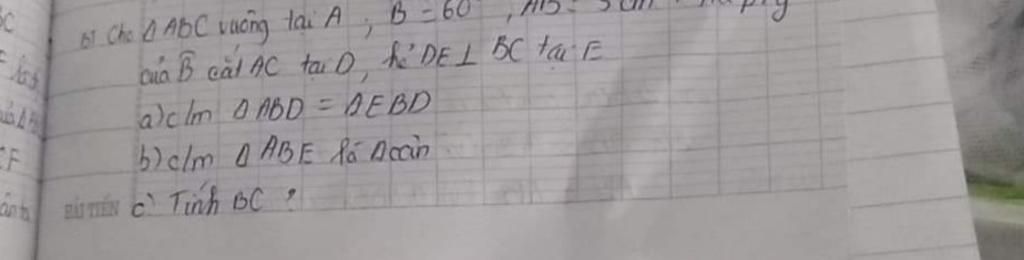 Cho ΔABC vuông tại A, B = 60°, AB = 5cm
của B̂ cắt AC tại D, kẻ DE ⊥ BC tại E
a) c/m ΔABD = ΔEBD
b) c/m ΔABE là Δcân
c) Tính BC ?